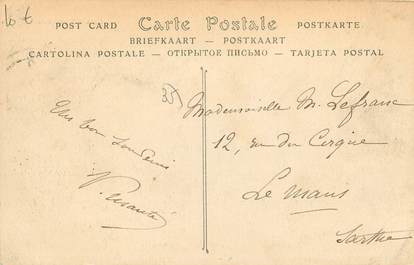 10 €
POST CARD Carte Postale POSTKARTE
BRIEFKAART — POSTKAART
CARTOLINA POSTALE — ОТКРЫТОЕ ПИСЬМО — TARJETA POSTAL
35
Mademoiselle M. Lefranc
12, rue du Cirque
Le Mans
Sarthe
bon